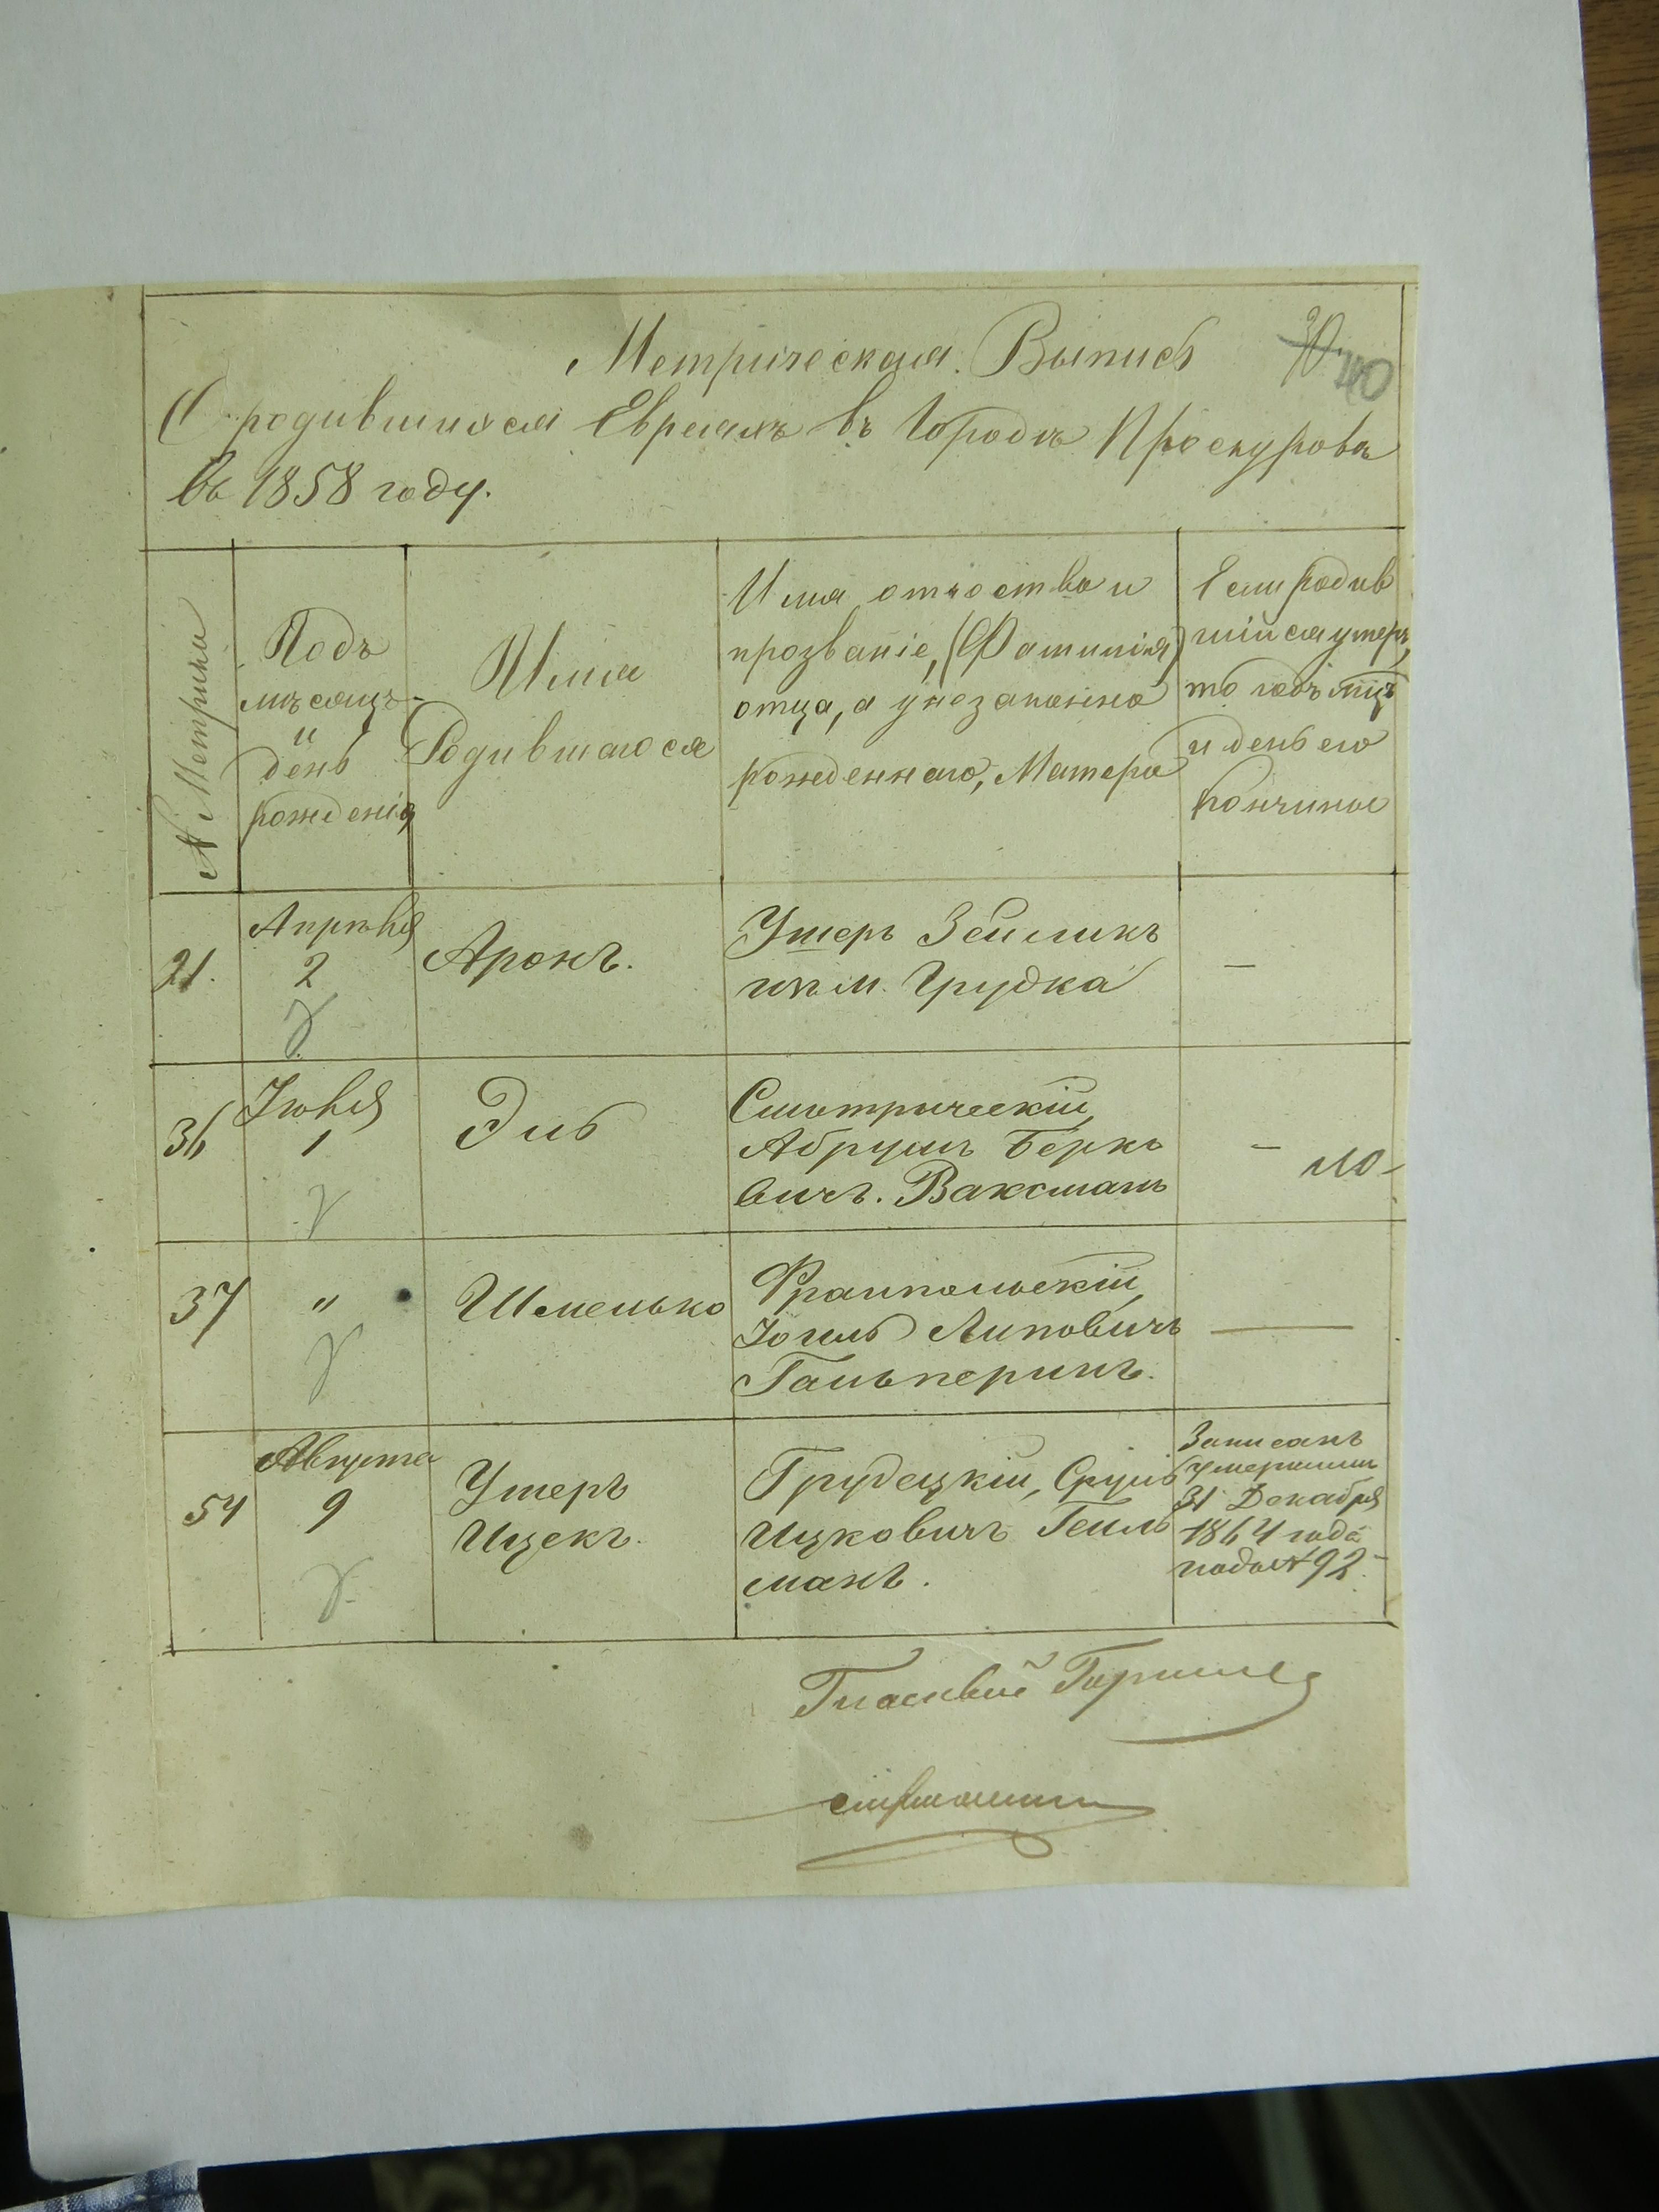 Метрическая Выпись
40
О родившихся Евреяхъ въ Городѣ Проскуровѣ
въ 1858 году.
№ Метрики
Годъ
мѣсяцъ
и
день
рожденія
Имя
Родившагося
Имя отчество и
прозваніе, (Фамилія)
отца, а у незаконно
рожденнаго, Матери
Если родив
шійся умеръ,
то годъ мцъ
и день его
кончины
21.
Апрѣля
2
Аронъ.
Ушеръ Зейликъ
изъ м. Грудка
—
36
Іюня
1
Эль
Смотрическій,
Абрумъ Берко
вичъ. Ваксманъ
—
37
"
Шмелько
Франпольскій,
Іоиль Липовичъ
Гальперинъ.
—
54
Августа
9
Ушеръ
Ицекъ.
Грудецкій, Сруль
Ицковичъ Гейль
манъ.
Записанъ
умершимъ
31 Декабря
1864 года
подъ № 92.
Гласный